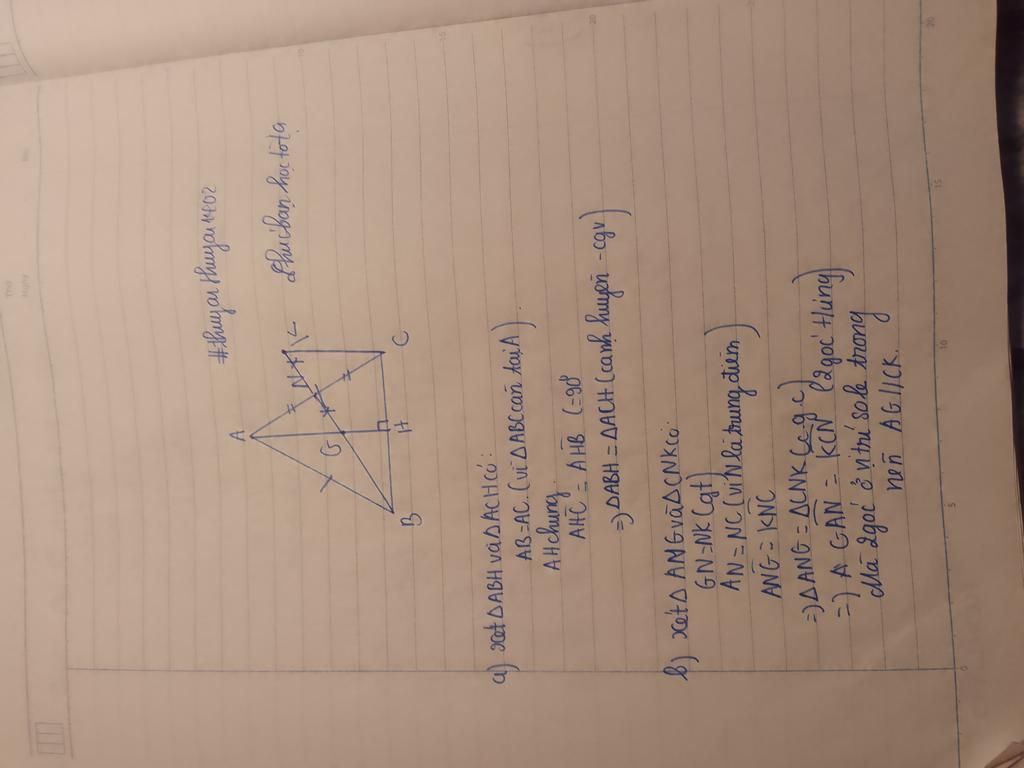 #thuyanthuyan1402
Chúc bạn học tốt ạ
A
N
K
G
B
H
C
a) xét ΔABH và ΔACH có:
AB=AC (vì ΔABC cân tại A)
AH chung
AHC = AHB (=90°
=) ΔABH = ΔACH (cạnh huyền - cgv)
b) xét Δ ANG và ΔCNK có:
GN=NK (gt)
AN = NC (vì N là trung điểm)
ANG = KNC
=) ΔANG = ΔCNK (c.g.c)
=) GAN = KCN (2 góc t/ứng)
Mà 2 góc ở vị trí sole trong
nên AG//CK.